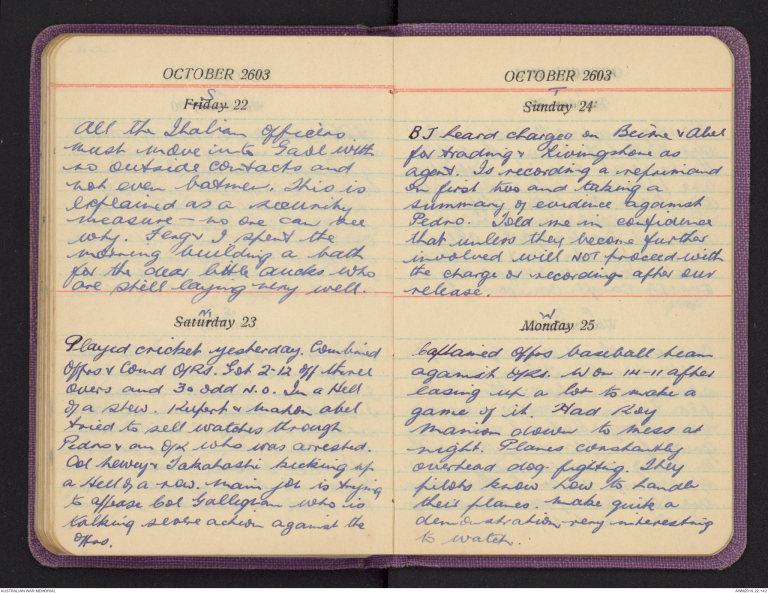 OCTOBER 2603
S
Friday 22
All the Italian officers
must move into Gaol with
no outside contacts and
not even batmen. This is
explained as a security
measure - no one can see
why. Feng & I spent the
morning building a bath
for the dear little ducks who
are still laying very well.
M
Saturday 23
Played cricket yesterday. Combined
Offrs & Comd ORs. Got 2-12 off three
overs and 30 odd N.O. In a Hell
of a stew. Rupert & Mahon abel
tried to sell watches through
Pedro & an OR who was arrested.
Col Newey & Takahashi kicking up
a Hell of a row. Main job is trying
to appease Col Galligan who is
talking severe action against the
Offrs.
OCTOBER 2603
T
Sunday 24
BJ heard charges on Beirne & Abel
for trading & Livingstone as
agent. Is recording a reprimand
on first two and taking a
summary of evidence against
Pedro. Told me in confidence
that unless they become further
involved will NOT proceed with
the charge or recording after our
release.
W
Monday 25
Captained Offrs baseball team
against ORs. Won 14-11 after
easing up a lot to make a
game of it. Had Roy
Manion down to mess at
night. Planes constantly
overhead dog fighting. They
pilots know how to handle
their planes. Make quite a
demonstration - very interesting
to watch.
AUSTRALIAN WAR MEMORIAL
AWM2019.22.142